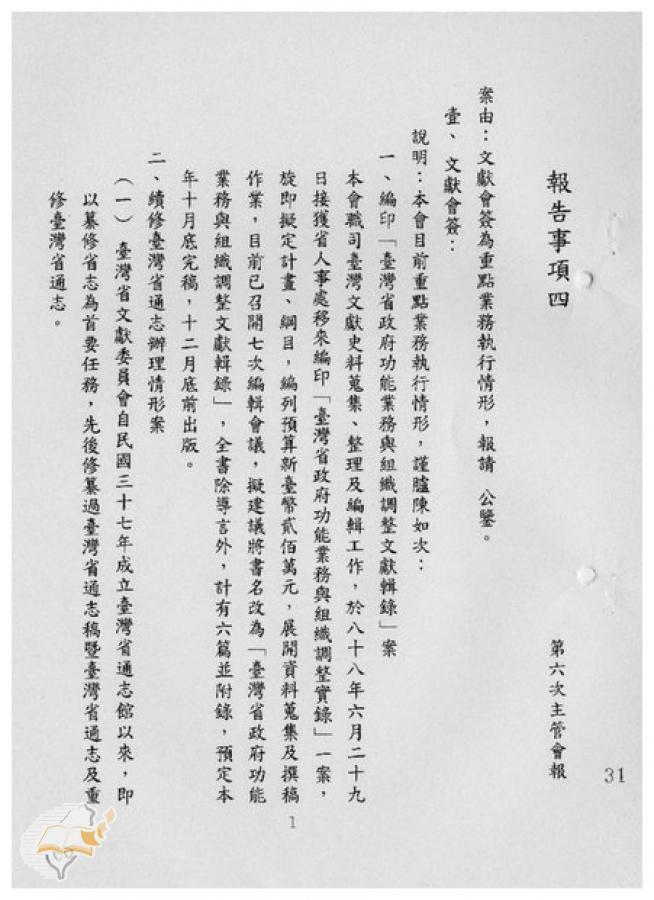 報告事項四
第六次主管會報
31
案由：文獻會簽為重點業務執行情形，報請 公鑒。
壹、文獻會簽：
說明：本會目前重點業務執行情形，謹臚陳如次：
一、編印「臺灣省政府功能業務與組織調整文獻輯錄」案
本會職司臺灣文獻史料蒐集、整理及編輯工作，於八十八年六月二十九
日接獲省人事處移來編印「臺灣省政府功能業務與組織調整實錄」一案，
旋即擬定計畫、綱目，編列預算新臺幣貳佰萬元，展開資料蒐集及撰稿
作業，目前已召開七次編輯會議，擬建議將書名改為「臺灣省政府功能
業務與組織調整文獻輯錄」，全書除導言外，計有六篇並附錄，預定本
年十月底完稿，十二月底前出版。
二、續修臺灣省通志辦理情形案
（一）臺灣省文獻委員會自民國三十七年成立臺灣省通志館以來，即
以纂修省志為首要任務，先後修纂過臺灣省通志稿暨臺灣省通志及重
修臺灣省通志。
1